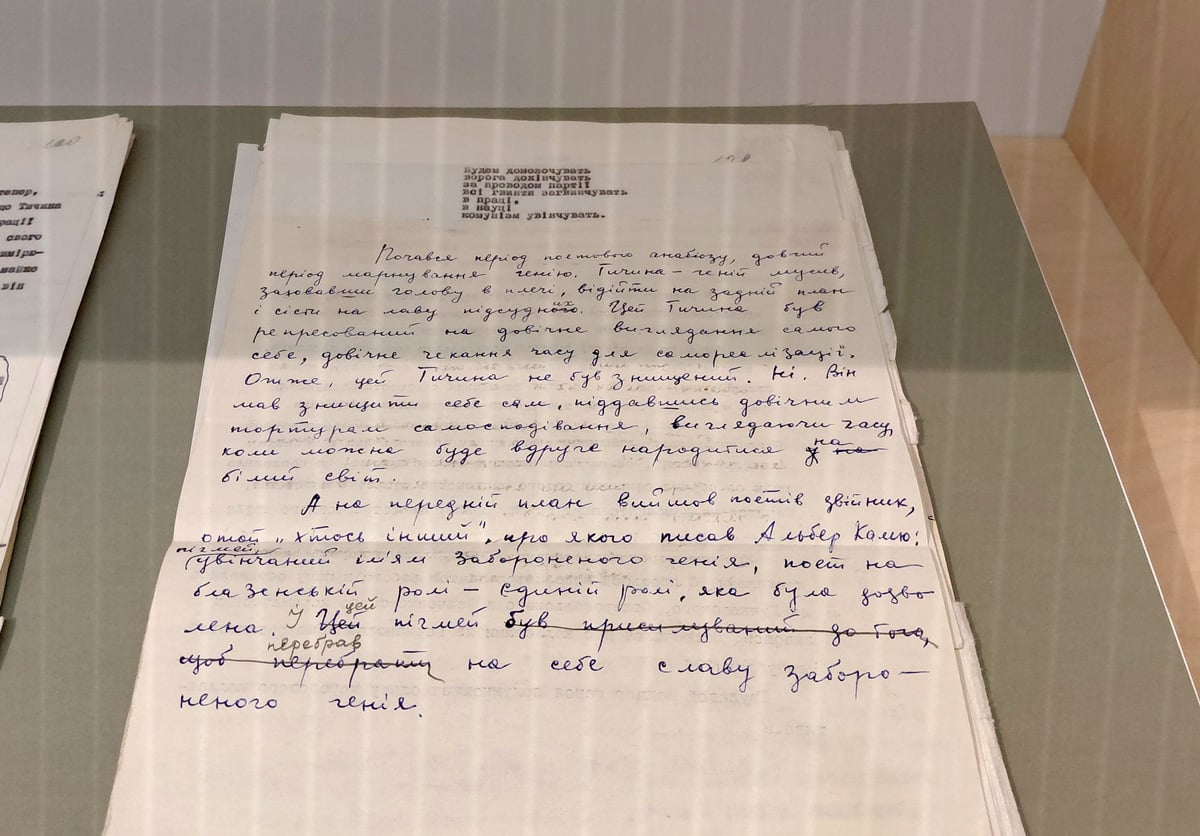 120
тепер,
що Тичина
рації
свого
вимірю-
майже
він
120
Будем домолочувать
ворога докінчувать
за проводом партії
всі гвинти загвинчувать
в праці,
в науці
комунізм увінчувать.
Почався період поетового анабіозу, довгий
період марнування генію. Тичина – геній мусив,
заховавши голову в плечі, відійти на задній план
і сісти на лаву підсудних. Цей Тичина був
репресований на довічне виглядання самого
себе, довічне чекання часу для самореалізації.
Отже, цей Тичина не був знищений. Ні. Він
мав знищити себе сам, піддавшись довічним
тортурам самосподівання, виглядаючи часу,
коли можна буде вдруге народитися у на на
білий світ.
А на передній план вийшов поетів звійник,
отой „хтось інший", про якого писав Альбер Камю:
пігмей,
увінчаний ім'ям забороненого генія, поет на
блазенській ролі – єдиній ролі, яка була дозво
лена. І Цей цей пігмей був присилуваний до того,
щоб перебрати перебрав на себе славу заборо–
неного генія.